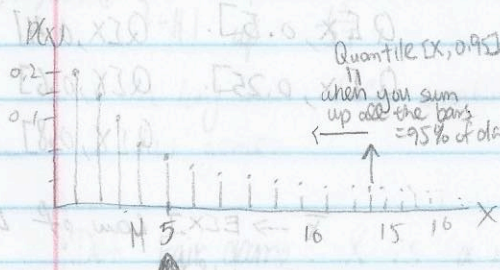 P(x)
Quantile [X, 0.95]
0.2
"
when you sum
up all the bars
0.1
= 95% of da
4 5 10 15 16 X